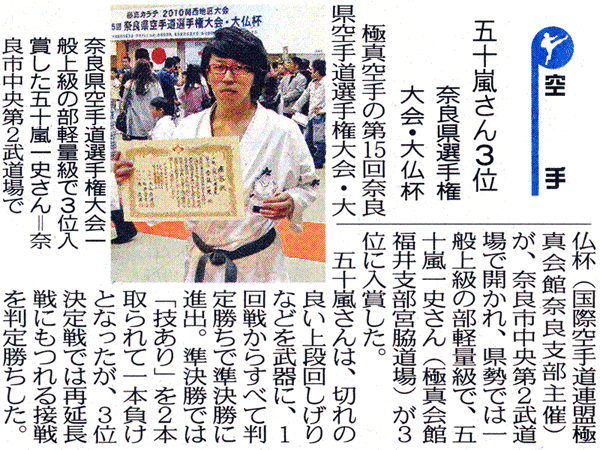 空手
五十嵐さん3位
奈良県選手権
大会・大仏杯
極真空手の第15回奈良
県空手道選手権大会・大
仏杯（国際空手道連盟極
真会館奈良支部主催）
が、奈良市中央第2武道
場で開かれ、県勢では一
般上級の部軽量級で、五
十嵐一史さん（極真会館
福井支部宮脇道場）が3
位に入賞した。
五十嵐さんは、切れの
良い上段回しげり
などを武器に、1
回戦からすべて判
定勝ちで準決勝に
進出。準決勝では
「技あり」を2本
取られて一本負け
となったが、3位
決定戦では再延長
戦にもつれる接戦
を判定勝ちした。
カラテ 2010関西地区大会
5回 奈良県空手道選手権大会・大仏杯
奈良県空手道選手権大会一
般上級の部軽量級で3位入
賞した五十嵐一史さん＝奈
良市中央第2武道場で